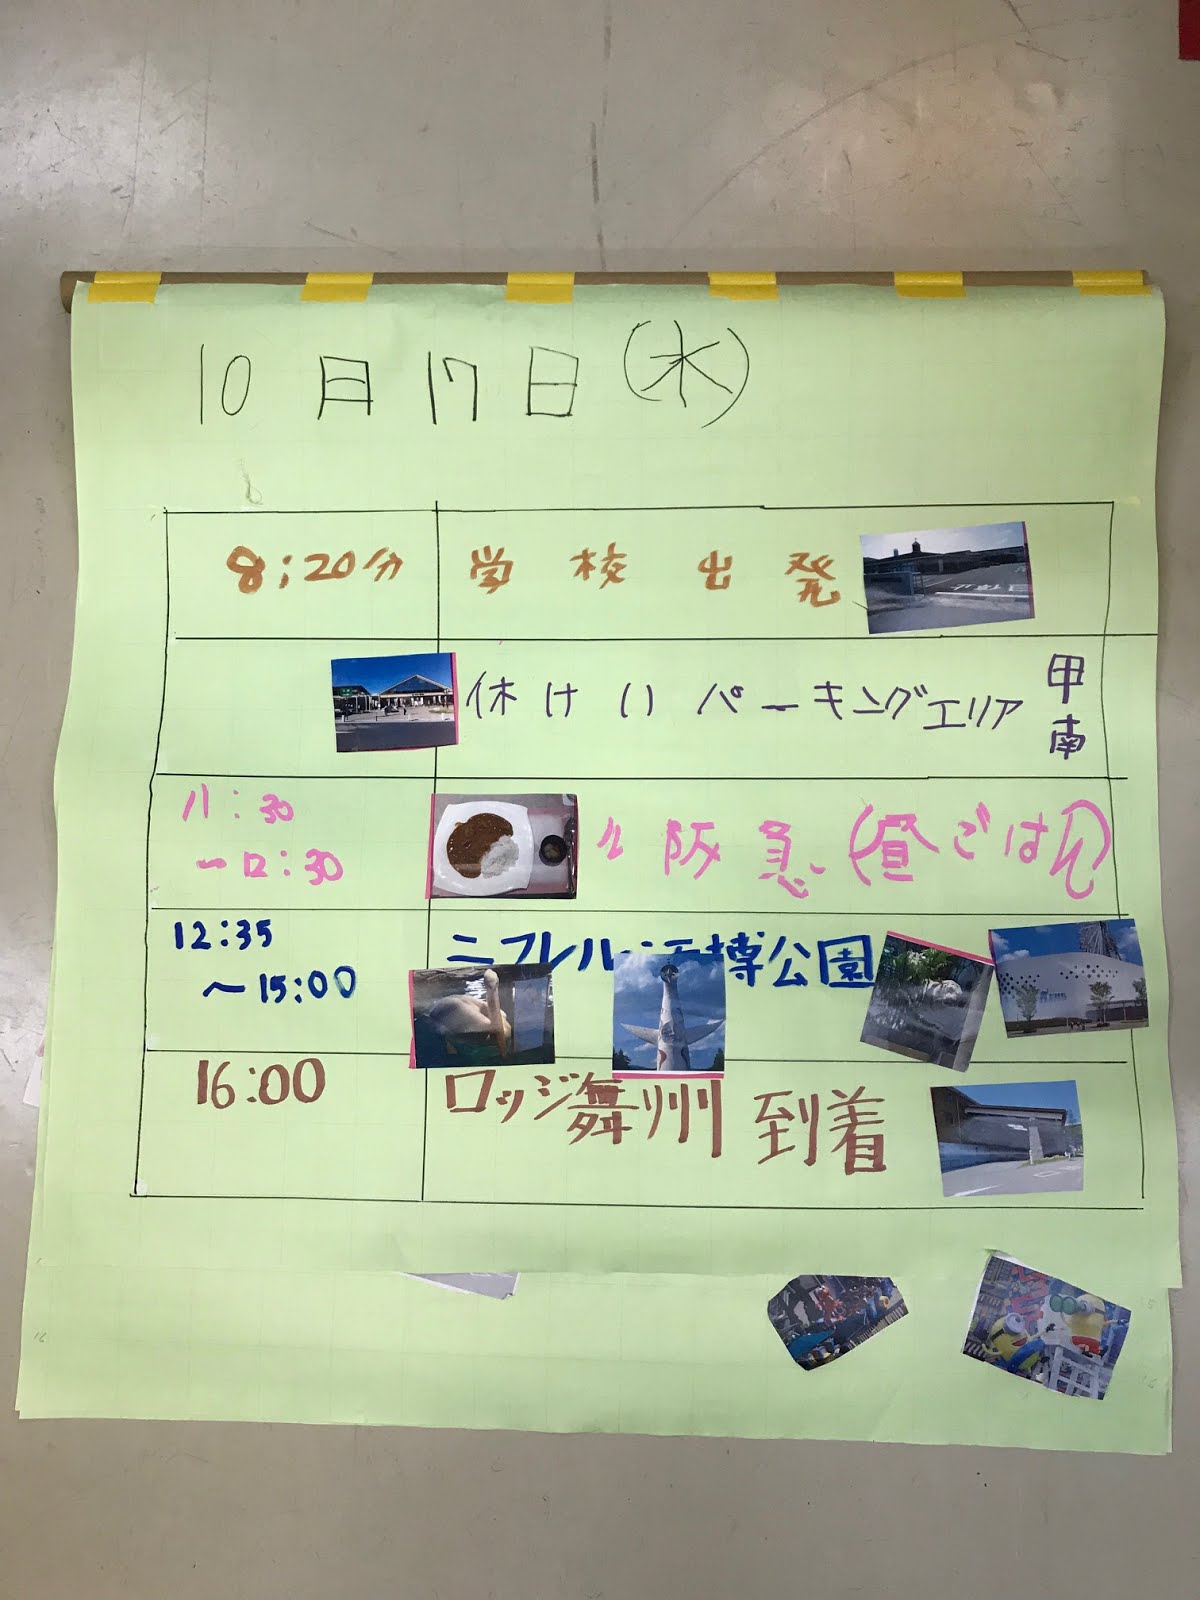 10月17日(水)
8:20分 学校出発
休けいパーキングエリア 甲南
11:30
～12:30
阪急(昼ごはん)
12:35
～15:00
ニフレル 万博公園
16:00 ロッジ舞州 到着